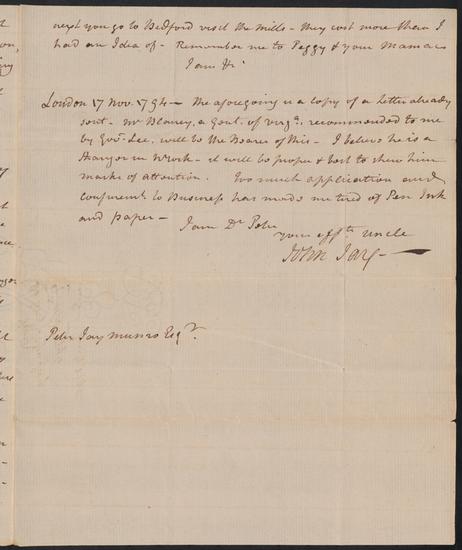 next you go to Bedford visit the Mills - they cost more than I
had an Idea of - Remember me to Peggy & your Mamas
I am &c
London 17 Nov. 1794 - The aforegoing is a copy of a Letter already
sent - Mr Blaney, a Gent. of Virga. recommended to me
by Govr. Lee, will be the Bearer of this - I believe he is a
in - it will be proper & best to shew him
marks of attention. Too much application and
confinemt. to Business has made me tired of Pen Ink
and paper -
I am Dr Peter
your affte. Uncle
John Jay -
Peter Jay Munro Esqr.